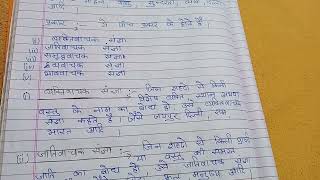 आदि
प्रकार :- ये पाँच प्रकार के होते हैं।
(i) व्यक्तिवाचक संज्ञा
(ii) जातिवाचक संज्ञा
(iii) समूहवाचक संज्ञा
(iv) द्रव्यवाचक संज्ञा
(v) भाववाचक संज्ञा
(i) व्यक्तिवाचक संज्ञा :- जिन शब्दों से किसी
व्यक्ति, स्थान
वस्तु के नाम का बोध हो उसे व्यक्तिवाचक
संज्ञा कहते हैं। जैसे जयपुर दिल्ली राम
भारत आदि।
(ii) जातिवाचक संज्ञा :- जिन शब्दों से किसी
या वस्तु की समस्त
जाति का बोध हो उसे जातिवाचक संज्ञा
आदि।